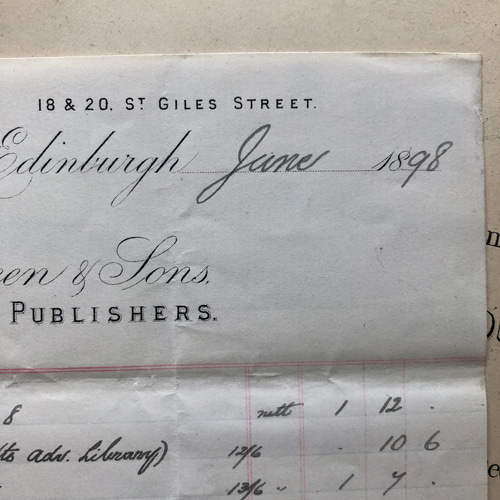 18 & 20, ST GILES STREET.
Edinburgh June 1898
een & Sons.
PUBLISHERS.
8 nett 1 12 .
ts adv. Library) 12/6 . 10 6
13/6 " 1 7 .